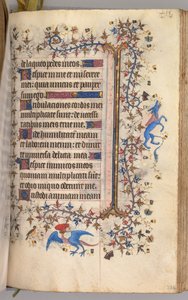 de laqueo pedes meos
Respice in me et miserere
mei quia unicus et pauper
sum ego
Tribulationes cordis mei
multiplicate sunt de necessi
tatibus meis erue me
Vide humilitatem meam
et laborem meum et dimitte
universa delicta mea
Respice inimicos meos
quoniam multiplicati sunt
et odio iniquo oderunt me
Custodi animam meam